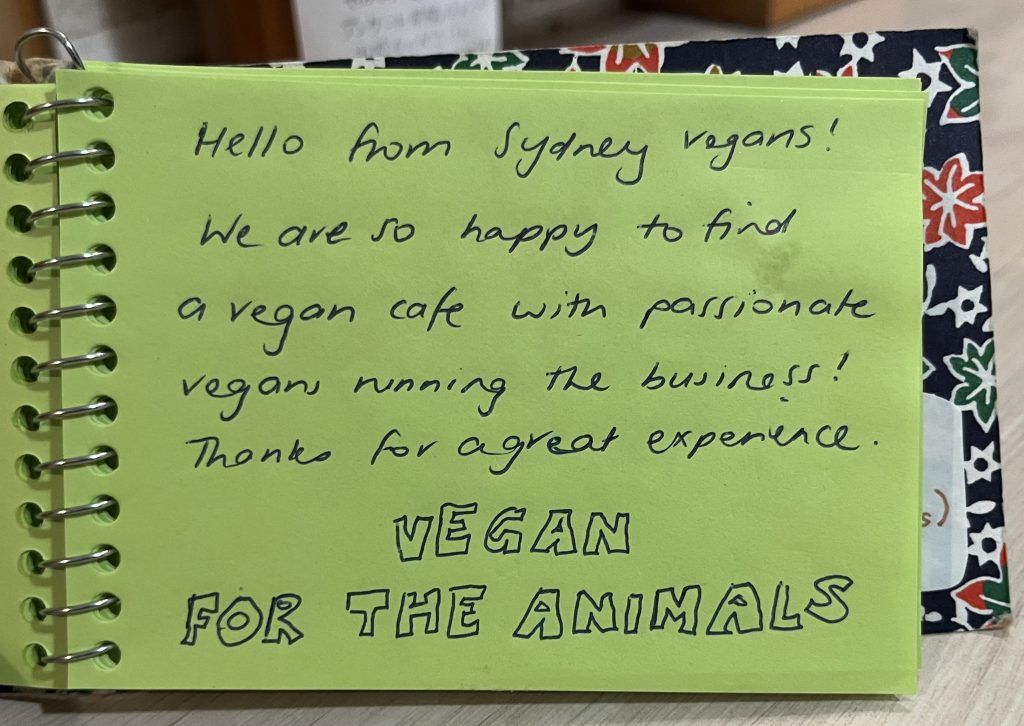 Hello from Sydney vegans!
We are so happy to find
a vegan cafe with passionate
vegans running the business!
Thanks for a great experience.
VEGAN
FOR THE ANIMALS
s)